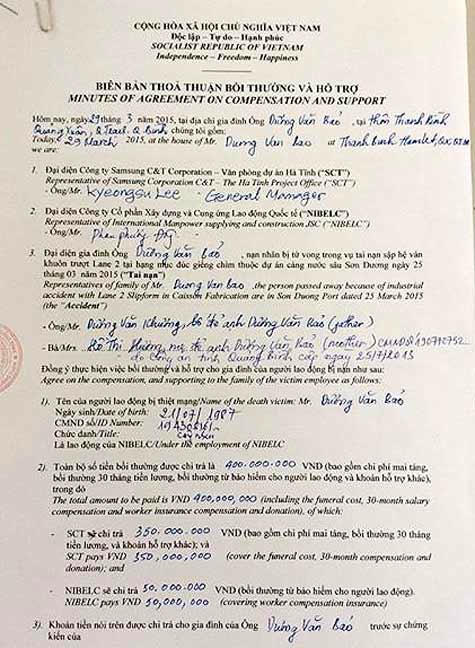 CỘNG HÒA XÃ HỘI CHỦ NGHĨA VIỆT NAM
Độc lập – Tự do – Hạnh phúc
SOCIALIST REPUBLIC OF VIETNAM
Independence – Freedom – Happiness
BIÊN BẢN THOẢ THUẬN BỒI THƯỜNG VÀ HỖ TRỢ
MINUTES OF AGREEMENT ON COMPENSATION AND SUPPORT
Hôm nay, ngày 29 tháng 3 năm 2015, tại địa chỉ gia đình Ông Dương Văn Báo, tại thôn Thanh Bình
Quảng Xuân, Q Trạch, Q Bình chúng tôi gồm:
Today, 29 March, 2015, at the house of Mr. Duong Van Bao at Thanh Binh Hamlet,
we are:
1. Đại diện Công ty Samsung C&T Corporation – Văn phòng dự án Hà Tĩnh ("SCT")
Representative of Samsung Corporation C&T – The Ha Tinh Project Office ("SCT")
- Ông/Mr. Kyeongsu Lee - General Manager
2. Đại diện Công ty Cổ phần Xây dựng và Cung ứng Lao động Quốc tế ("NIBELC")
Representative of International Manpower supplying and construction JSC ("NIBELC")
- Ông/Mr. Phan Phương
3. Đại diện gia đình Ông Dương Văn Báo, nạn nhân bị tử vong trong vụ tai nạn sập hệ ván
khuôn trượt Lane 2 tại hạng mục đúc giếng chìm thuộc dự án cảng nước sâu Sơn Dương ngày 25
tháng 03 năm 2015 ("Tai nạn")
Representatives of family of Mr. Duong Van Bao, the person passed away because of industrial
accident with Lane 2 Slipform in Caisson Fabrication are in Son Duong Port dated 25 March 2015
(the "Accident")
- Ông/Mr. Dương Văn Khường, bố đẻ anh Dương Văn Báo (father)
- Bà/Mrs. Hồ Thị Hường, mẹ đẻ anh Dương Văn Báo (mother) CMND số 190710752
do Công an tỉnh Quảng Bình cấp ngày 25/7/2013
Đồng ý thực hiện việc bồi thường và hỗ trợ cho gia đình của người lao động bị nạn như sau:
Agree on the compensation, and supporting to the family of the victim employee as follows:
1). Tên của người lao động bị thiệt mạng/Name of the death victim: Mr. Dương Văn Báo
Ngày sinh/Date of birth: 21/07/1987
CMND số/ID Number:
Chức danh/Title:
Là lao động của NIBELC/Under the employment of NIBELC
2). Toàn bộ số tiền bồi thường được chi trả là 400.000.000 VND (bao gồm chi phí mai táng,
bồi thường 30 tháng tiền lương, bồi thường từ bảo hiểm cho người lao động và khoản hỗ trợ khác),
trong đó
The total amount to be paid is VND 400,000,000 (including the funeral cost, 30-month salary
compensation and worker insurance compensation and donation), of which:
- SCT sẽ chi trả 350.000.000 VND (bao gồm chi phí mai táng, bồi thường 30 tháng
tiền lương, và khoản hỗ trợ khác); và
SCT pays VND 350,000,000 (cover the funeral cost, 30-month compensation and
donation); and
- NIBELC sẽ chi trả 50.000.000 VND (bồi thường từ bảo hiểm cho người lao động).
NIBELC pays VND 50,000,000 (covering worker compensation insurance)
3). Khoản tiền nói trên được chi trả cho gia đình của Ông Dương Văn Báo trước sự chứng
kiến của